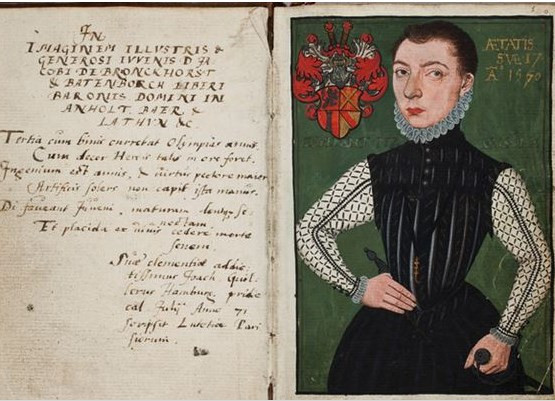 IN
IMAGINEM ILLUSTRIS &
GENEROSI IVVENIS D JA
COBI DE BRONCKHORST
& BATENBORCH LIBERI
BARONIS DOMINI IN
ANHOLT BAER &
LATHVN &c
Tertia cum binis currebat Olympias annis
Cum decor Herois talis in ore foret.
Ingenium est annis, & virtus pectore maior
Artificis solers non capit ista manus.
Di faveant Juveni, maturam dentq; se
nectam
Et placida cedere morte
senem.
Suæ clementiæ addic
tissimus Joach. Guil
lerus Hamburg. pridie
cal Julij Anno 71
scripsit Lutetiæ Pari
siorum.
ÆTATIS
SVÆ 17
A° 1570